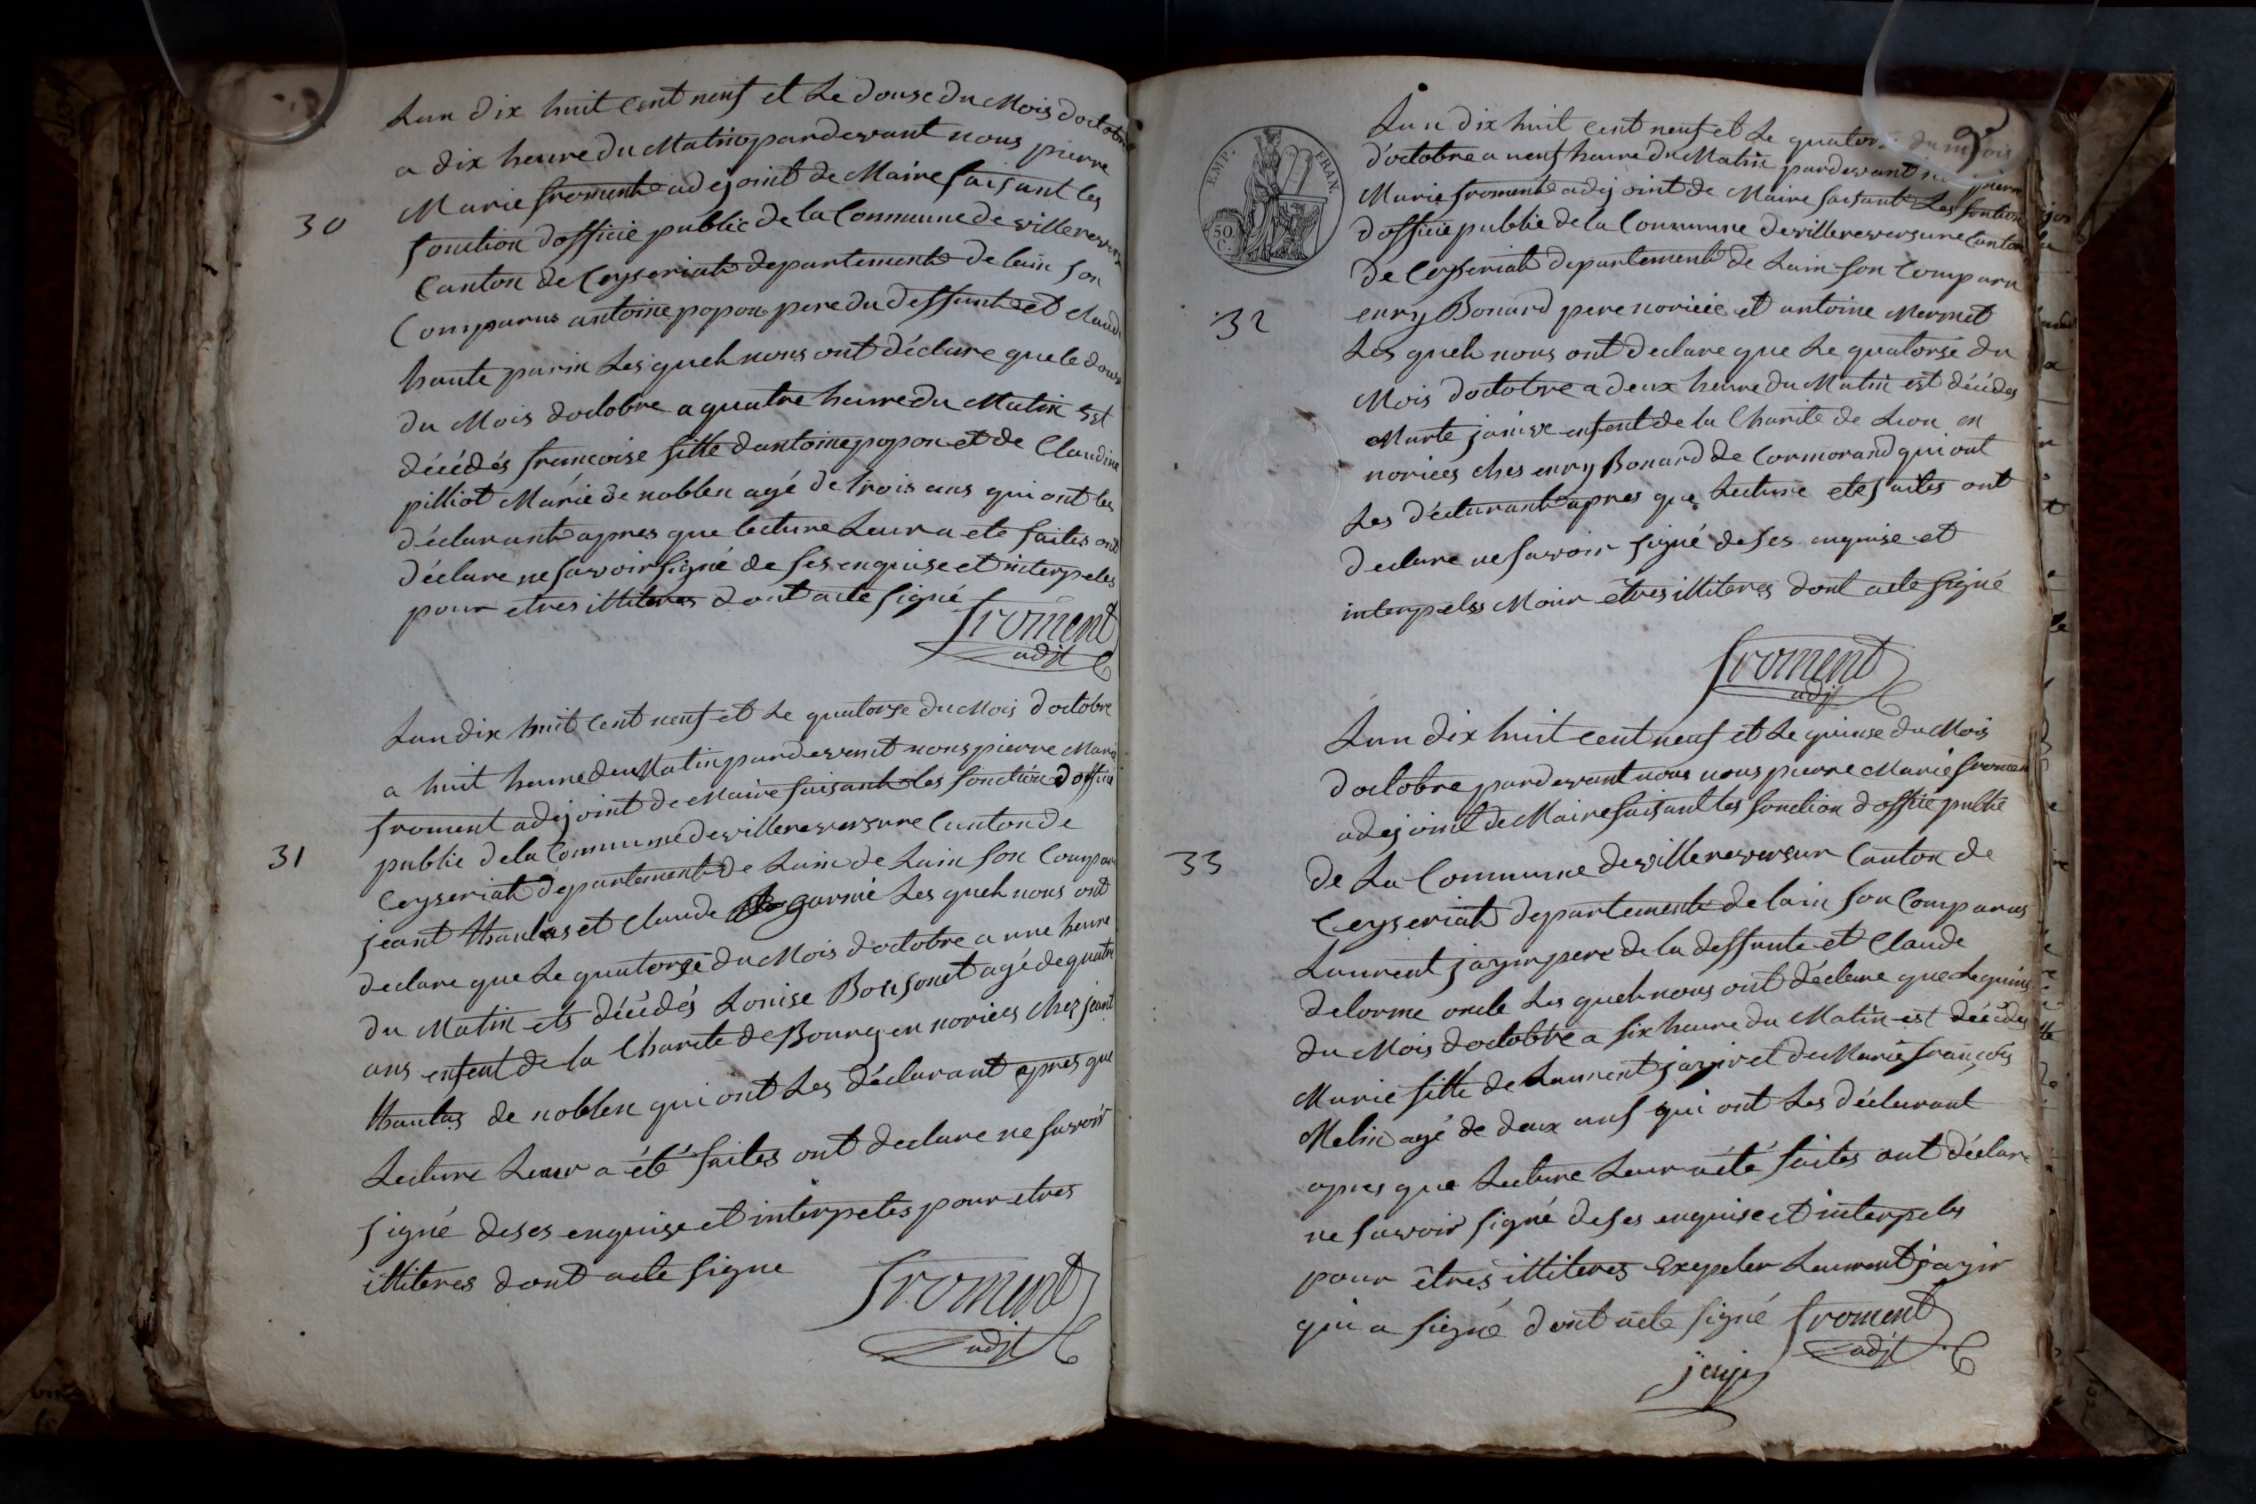 Lan dix huit Cent neuf et Le douse du Mois doctobre
a dix heure du Matin pardevant nous pierre
Marie froment adejoint de Maire faisant les
30
fonction dofficie public de la Commune de villereversure
Canton de Ceyseriat departement de lain son
Comparus antoine popon pere du deffunt et claude
haute parin Lesquels nous ont déclare que le douse
du Mois doctobre a quatre heure du Matin Est
décédés francoise fille dantoine popon et de Claudine
pilliot Marié de noblen agé de trois ans qui ont les
déclarant apres que lecture Leur a ete faites ont
déclare ne savoir signé de ses enquise et interpeles
pour etres illiteres dont acte signé
froment
adjt
Lan dix huit Cent neuf et Le quatorse du Mois doctobre
a huit heure du Matin pardevant nous pierre Marie
froment adejoint de Maire faisant les fonction dofficie
public dela Commune de villereversure Canton de
31
Ceyseriat departement de Lain de Lain son Compar
jeant thaulas et Claude garnie Les quels nous ont
declare que Le quatorse du Mois doctobre a une heure
du Matin ets décédés Louise Boujonet agé de quatre
ans enfent de la Charite de Bourg en norices Chez jeant
thaulas de noblen qui ont Les déclarant apres que
Lecture Leur a été faites ont declare ne savoir
signé deses enquise et interpeles pour etres
illiteres dont acte signe
froment
adjt
EMP. FRAN.
50 C.
Lan dix huit cent neuf et Le quatorse du mois
d'octobre a neuf heure du Matin pardevant pierre
Marie froment adejoint de Maire faisant Les fonction
dofficie public de la Commune de villereversure Canton
de Ceyseriat departement de Lain son Comparu
32
enry Bonard pere noricié et antoine Mermet
Les quels nous ont declare que Le quatorse du
Mois doctobre a deux heure du Matin est décédes
Marte janise enfent de la Charite de Lion en
norices ches enry Bonard de Cormorand qui ont
Les déclarant apres que Lecture ete faites ont
declare ne savoir signé de ses enquise et
interpeles Moir êtres illiteres dont acte signé
froment
adjt
Lan dix huit cent neuf et Le quinse du Mois
doctobre pardevant nous nous pierre Marie froment
adejoint de Maire faisant les fonction dofficie public
33
de La Commune de villereversur Canton de
Ceyseriat departement de lain son Comparus
Laurent jayir pere de la deffunte et Claude
delorme oncle Les quels nous ont déclare que Le quinse
du Mois doctobre a six heure du Matin est décédes
Marie fille de Laurent jayir et de Marie françoise
Melin agé de deux ans qui ont Les déclarant
apres que Lecture Leur a été faites ont déclare
ne savoir signé deses enquise et interpeles
pour êtres illiteres Exepeler Laurent jayir
qui a signé dont acte signé froment
adjt